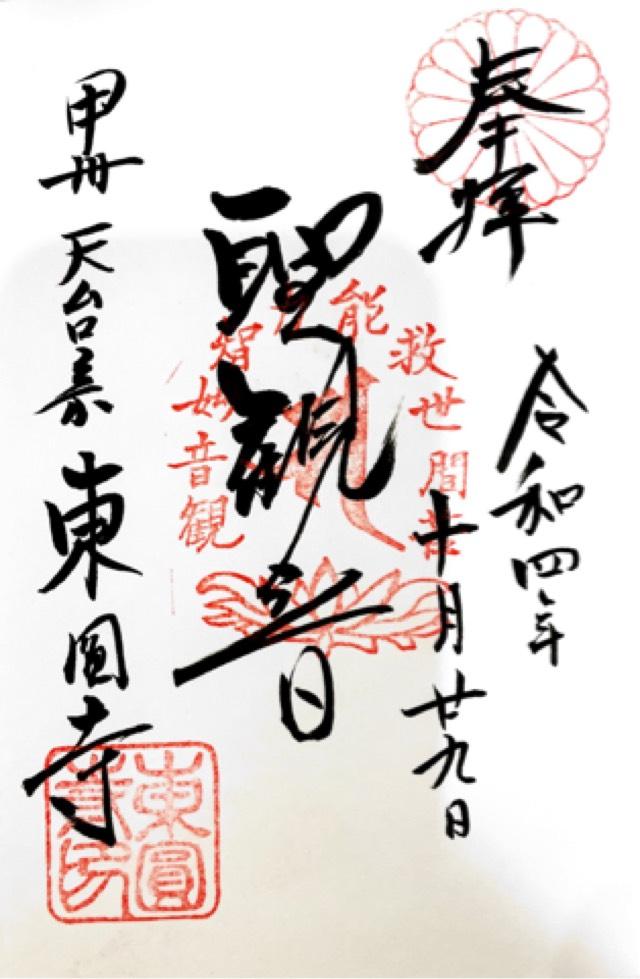 奉拝
令和四年
十月廿九日
聖観音
甲州 天台宗 東圓寺
能救世間苦
智妙音観
東圓